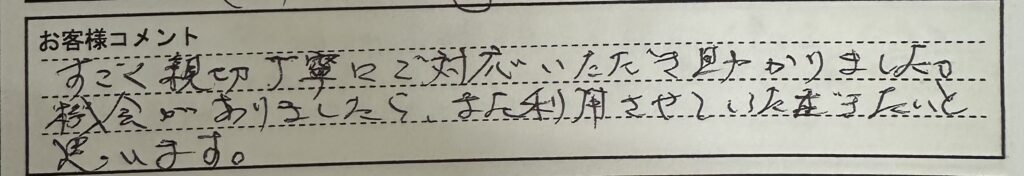 お客様コメント
すごく親切丁寧に対応いただき助かりました。
機会がありましたら、また利用させていただきたいと
思います。